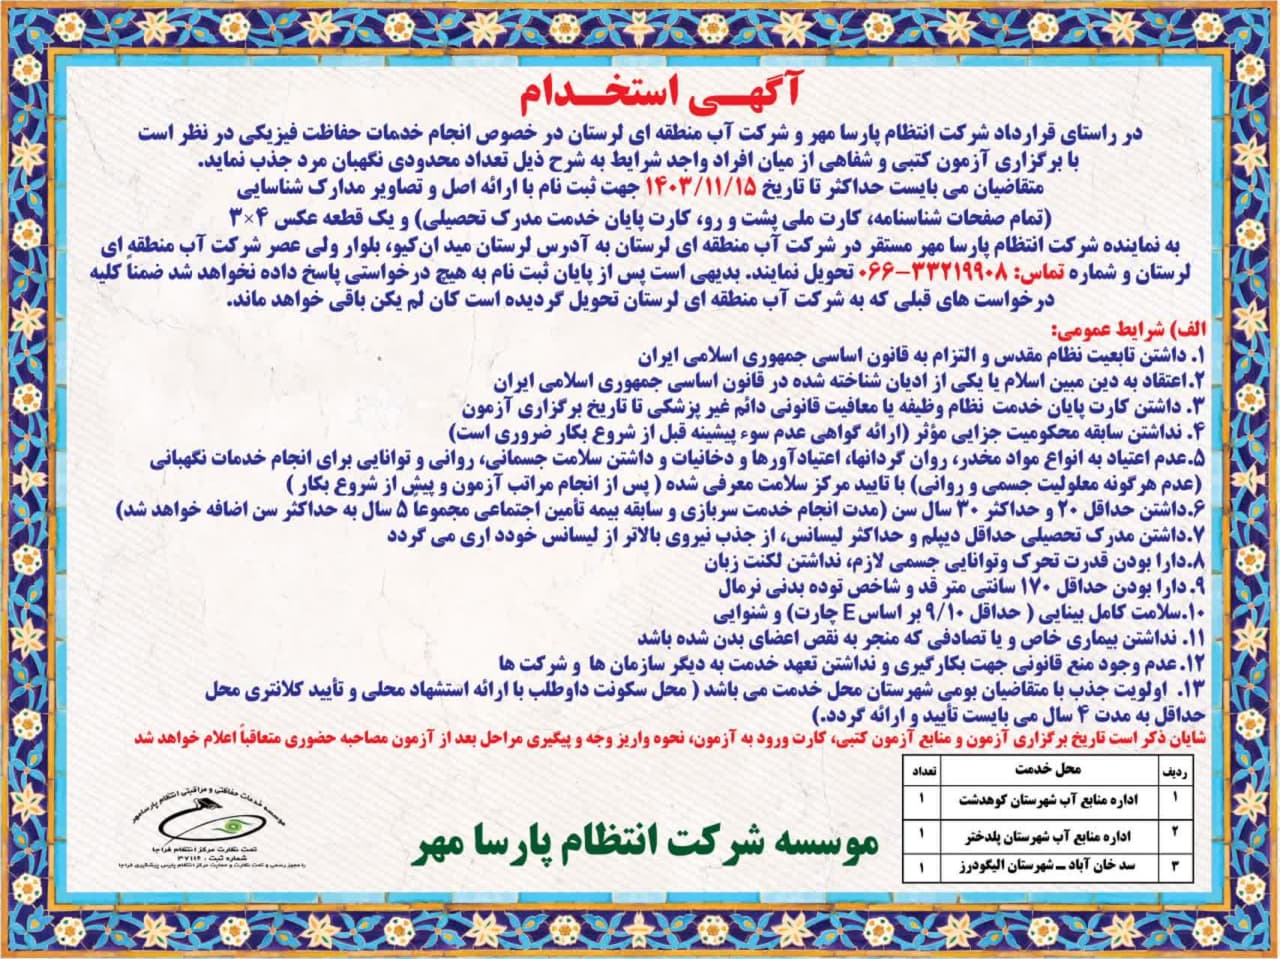 آگهی استخدام
در راستای قرارداد شرکت انتظام پارسا مهر و شرکت آب منطقه ای لرستان در خصوص انجام خدمات حفاظت فیزیکی در نظر است
با برگزاری آزمون کتبی و شفاهی از میان افراد واجد شرایط به شرح ذیل تعداد محدودی نگهبان مرد جذب نماید.
متقاضیان می بایست حداکثر تا تاریخ ۱۴۰۳/۱۱/۱۵ جهت ثبت نام با ارائه اصل و تصاویر مدارک شناسایی
(تمام صفحات شناسنامه، کارت ملی پشت و رو، کارت پایان خدمت مدرک تحصیلی) و یک قطعه عکس ۴×۳
به نماینده شرکت انتظام پارسا مهر مستقر در شرکت آب منطقه ای لرستان به آدرس لرستان میدان‌کیو، بلوار ولی عصر شرکت آب منطقه ای
لرستان و شماره تماس: ۳۳۲۱۹۹۰۸-۰۶۶ تحویل نمایند. بدیهی است پس از پایان ثبت نام به هیچ درخواستی پاسخ داده نخواهد شد ضمناً کلیه
درخواست های قبلی که به شرکت آب منطقه ای لرستان تحویل گردیده است کان لم یکن باقی خواهد ماند.
الف) شرایط عمومی:
۱. داشتن تابعیت نظام مقدس و التزام به قانون اساسی جمهوری اسلامی ایران
۲.اعتقاد به دین مبین اسلام یا یکی از ادیان شناخته شده در قانون اساسی جمهوری اسلامی ایران
۳. داشتن کارت پایان خدمت نظام وظیفه یا معافیت قانونی دائم غیر پزشکی تا تاریخ برگزاری آزمون
۴. نداشتن سابقه محکومیت جزایی مؤثر (ارائه گواهی عدم سوء پیشینه قبل از شروع بکار ضروری است)
۵.عدم اعتیاد به انواع مواد مخدر، روان گردانها، اعتیادآورها و دخانیات و داشتن سلامت جسمانی، روانی و توانایی برای انجام خدمات نگهبانی
(عدم هرگونه معلولیت جسمی و روانی) با تایید مرکز سلامت معرفی شده ( پس از انجام مراتب آزمون و پیش از شروع بکار )
۶.داشتن حداقل ۲۰ و حداکثر ۳۰ سال سن (مدت انجام خدمت سربازی و سابقه بیمه تأمین اجتماعی مجموعاً ۵ سال به حداکثر سن اضافه خواهد شد)
۷.داشتن مدرک تحصیلی حداقل دیپلم و حداکثر لیسانس، از جذب نیروی بالاتر از لیسانس خودد اری می گردد
۸.دارا بودن قدرت تحرک وتوانایی جسمی لازم، نداشتن لکنت زبان
۹.دارا بودن حداقل ۱۷۰ سانتی متر قد و شاخص توده بدنی نرمال
۱۰.سلامت کامل بینایی ( حداقل ۹/۱۰ بر اساس E چارت) و شنوایی
۱۱. نداشتن بیماری خاص و یا تصادفی که منجر به نقص اعضای بدن شده باشد
۱۲. عدم وجود منع قانونی جهت بکارگیری و نداشتن تعهد خدمت به دیگر سازمان ها و شرکت ها
۱۳. اولویت جذب با متقاضیان بومی شهرستان محل خدمت می باشد ( محل سکونت داوطلب با ارائه استشهاد محلی و تأیید کلانتری محل
حداقل به مدت ۴ سال می بایست تأیید و ارائه گردد.)
شایان ذکر است تاریخ برگزاری آزمون و منابع آزمون کتبی، کارت ورود به آزمون، نحوه واریز وجه و پیگیری مراحل بعد از آزمون مصاحبه حضوری متعاقباً اعلام خواهد شد
ردیف محل خدمت تعداد
۱ اداره منابع آب شهرستان کوهدشت ۱
۲ اداره منابع آب شهرستان پلدختر ۱
۳ سد خان آباد ــ شهرستان الیگودرز ۱
موسسه شرکت انتظام پارسا مهر
موسسه خدمات حفاظتی و مراقبتی انتظام پارسا مهر
تحت نظارت مرکز انتظام فراجا
شماره ثبت : ۳۷۱۱۶
با مجوز رسمی و تحت نظارت و حمایت مرکز انتظام پلیس پیشگیری فراجا